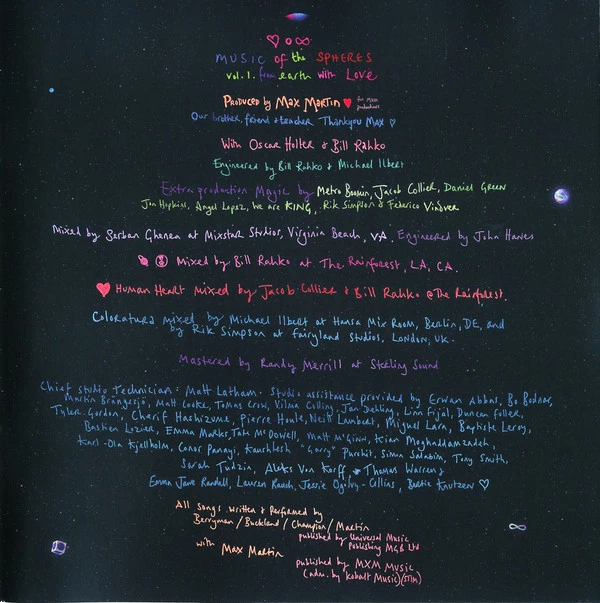 MUSIC of the SPHERES
vol. 1. from earth with Love
Produced by Max Martin for MXM productions
Our brother, friend & teacher Thankyou Max
With Oscar Holter & Bill Rahko
Engineered by Bill Rahko & Michael Ilbert
Extra production Magic by Metro Boomin, Jacob Collier, Daniel Green
Jon Hopkins, Angel Lopez, We are KING, Rik Simpson & Federico Vindver
Mixed by Serban Ghenea at Mixstar Studios, Virginia Beach, VA. Engineered by John Hanes
Mixed by Bill Rahko at The Rainforest, LA, CA.
Human Heart mixed by Jacob Collier & Bill Rahko @ The Rainforest.
Coloratura mixed by Michael Ilbert at Hansa Mix Room, Berlin, DE, and
by Rik Simpson at Fairyland Studios, London, UK.
Mastered by Randy Merrill at Sterling Sound
Chief studio Technician: Matt Latham. Studio assistance provided by Erwan Abbas, Bo Bodnar,
Martin Brängesjö, Matt Cooke, Tomas Crow, Vilma Colling, Jan Dehling, Linn Fijal, Duncan Fuller,
Tyler Gordon, Cherif Hashizume, Pierre Houle, Neill Lambert, Miguel Lara, Baptiste Leroy,
Bastien Lozier, Emma Marks, Tate McDowell, Matt McGinn, Kian Moghaddamzadeh,
Karl-Ola Kjellholm, Conor Panayi, Kaushlesh "Garry" Purohit, Simon Salabim, Tony Smith,
Sarah Tudzin, Aleks Von Korff, & Thomas Warren &
Emma Jane Randell, Lauren Rauch, Jessie Ogilvy-Collins, Beatie Knutzen
All songs written & performed by
Berryman / Buckland / Champion / Martin
published by Universal Music
Publishing MGB Ltd
with Max Martin
published by MXM Music
(adm. by Kobalt Music) (STIM)